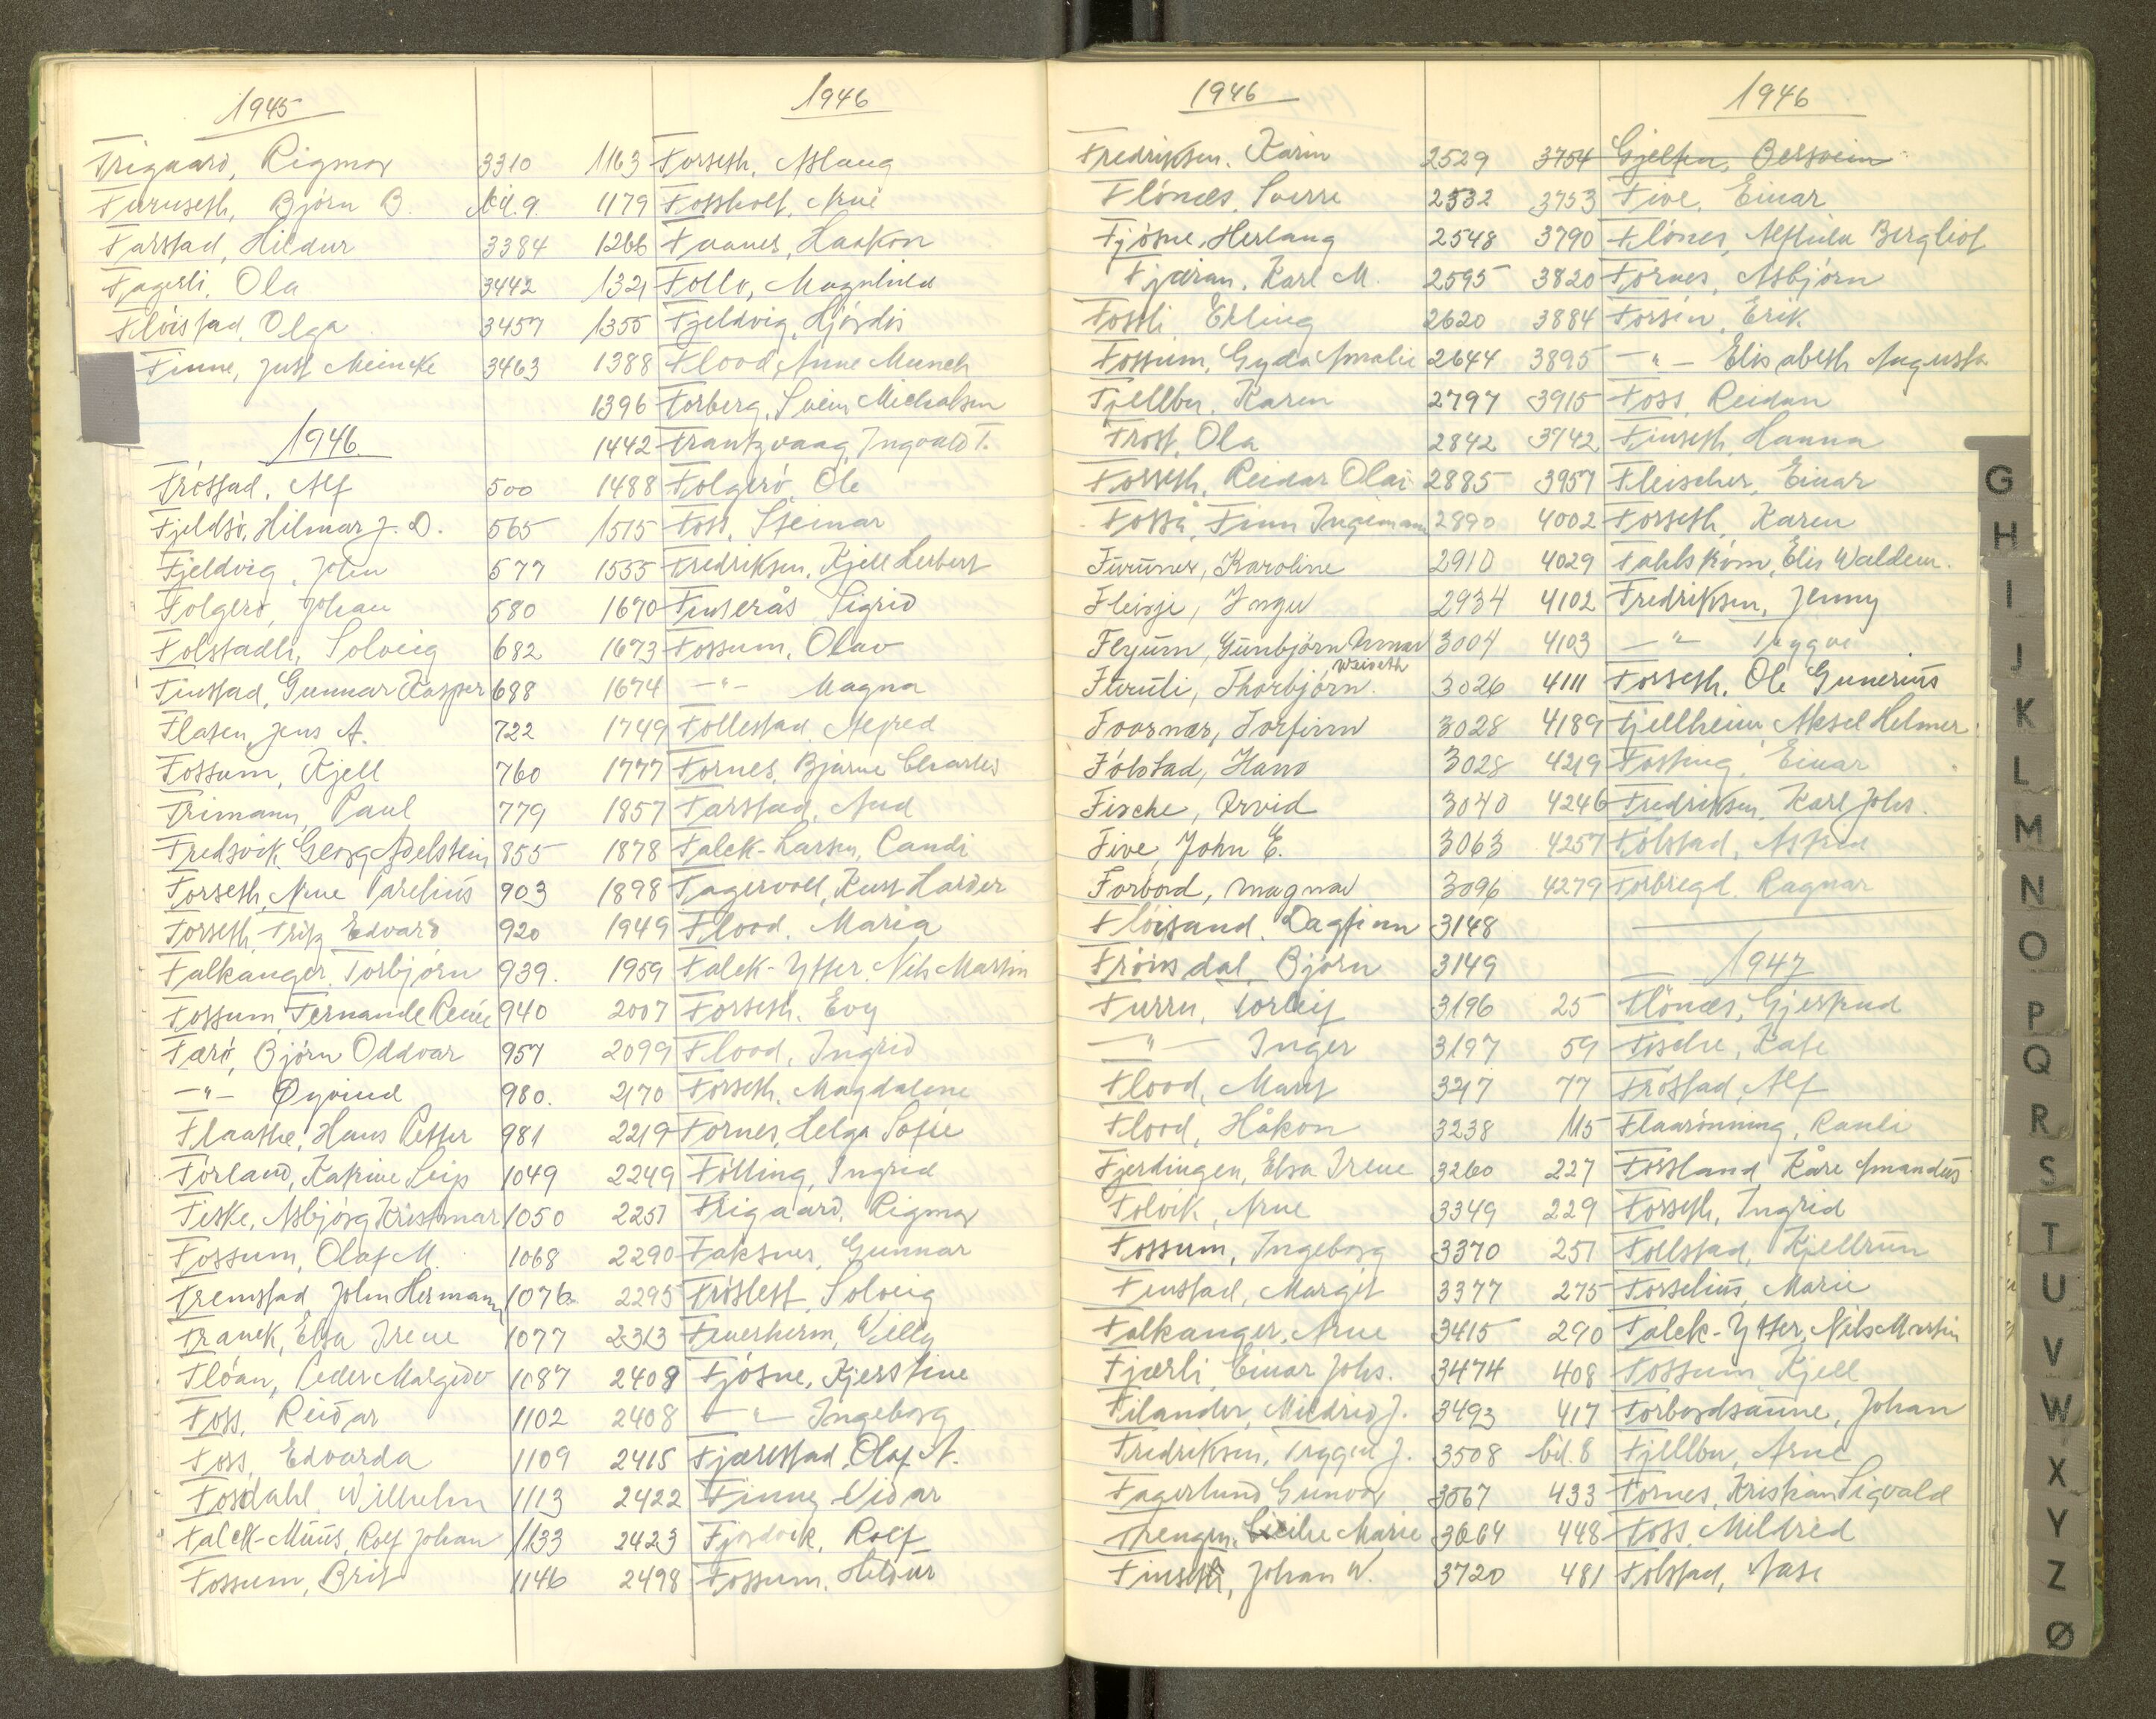 1945
Frigaard, Rigmor 3310
Furuseth, Björn B. bil. 9.
Farstad, Hildur 3384
Fagerli, Ola 3442
Flöistad, Olga 3457
Finne, Just Meincke 3463
1946
Fröstad, Alf 500
Fjeldsö, Hilmar J. D. 565
Fjeldvig, John 577
Folgerö, Johan 580
Folstadli, Solveig 682
Finstad, Gunnar Kasper 688
Flasen, Jens A. 722
Fossum, Kjell 760
Frimann, Paul 779
Fredsvik, Georg Adelstein 855
Forseth, Arne Parelius 903
Forseth, Fritz Edvard 920
Falkanger, Torbjörn 939.
Fossum, Fernande Renée 940
Færö, Björn Oddvar 957
—"— Øyvind 980.
Flaathe, Hans Petter 981
Förland, Katrine Seip 1049
Fiske, Asbjörg Kristmar 1050
Fossum, Olaf M. 1068
Fremstad, John Hermann 1076
Franck, Elsa Irene 1077
Flöan, Peder Margido 1087
Foss, Reidar 1102
Foss, Edvarda 1109
Fosdahl, Wilhelm 1113
Falck-Muus, Rolf Johan 1133
Fossum, Brit 1146
1946
1163 Forseth, Aslaug
1179 Fossholt, Arne
1266 Faanes, Haakon
1321 Follo, Magnhild
1355 Fjeldvig, Hjördis
1388 Flood, Anne Munch
1396 Forberg, Svein Michalsen
1442 Frantzvaag, Ingvald T.
1488 Folgerö, Ole
1515 Foss, Steinar
1555 Fredriksen, Kjell Herbert
1670 Finserås Sigrid
1673 Fossum, Olav
1674 —"— Magna
1749 Follestad Alfred
1777 Fornes, Bjarne Charles
1857 Farstad, Aud
1878 Falck-Larsen, Candi
1898 Fagervoll, Kurt Harder
1949 Flood, Maria
1959 Falck-Ytter, Nils Martin
2007 Forseth, Evy
2099 Flood, Ingrid
2170 Forseth, Magdalene
2219 Fornes, Helga Sofie
2249 Fölling, Ingrid
2251 Frigaard, Rigmor
2290 Faksnes, Gunnar
2295 Fröslest, Solveig
2313 Feuerherm, Willy
2409 Fjösne, Kjerstine
2408 —"— Ingeborg
2415 Fjærestad, Olaf A.
2422 Finne, Vidar
2423 Fjordvik, Rolf
2498 Fossum, Hildur
1946
Fredriksen, Karin 2529
Flönes, Sverre 2532
Fjösne, Herlaug 2548
Fjæran, Karl M. 2595
Fossli Erling 2620
Fossum, Gyda Amalie 2644
Fjellbu, Karen 2797
Frost, Ola 2842
Forseth, Reidar Olai 2885
Fosså, Finn Ingemann 2890
Furunes, Karoline 2910
Fleisje, Inger 2934
Flyum, Gunbjörn Arnar 3004
Furuli, Thorbjörn Waiseth 3026
Foosnæs, Torfinn 3028
Fölstad, Hans 3028
Fische, Arvid 3040
Five, John E. 3063
Forbord, Magnar 3096
Flöisand, Dagfinn 3148
Fröinsdal, Björn 3149
Furru, Torleif 3196
—"— Inger 3197
Flood, Mary 3217
Flood, Håkon 3238
Fjerdingen, Elsa Irene 3260
Folvik, Arne 3349
Fossum, Ingeborg 3370
Finstad, Margit 3377
Falkanger, Arne 3415
Fjærli, Einar Johs. 3474
Filander, Mildrid J. 3493
Fredriksen, Trygve J. 3508
Fagerlund Gunvor 3567
Frengen, Cicilie Marie 3664
Finseth, Johan W. 3720
1946
3754 Gjelten, Bersvein
3753 Five, Einar
3790 Flönes, Alfhilda Bergliot
3820 Fornes, Asbjörn
3884 Forsén, Erik
3895 —"— Elisabeth Augusta
3915 Foss, Reidun
3942 Finseth, Hanna
3957 Fleischer, Einar
4002 Forseth, Karen
4029 Fahlström, Elis Waldem.
4102 Fredriksen, Jenny
4103 —"— Trygve
4111 Forseth, Ole Gunerius
4189 Fjellheim Aksel Helmer
4219 Fosting, Einar
4246 Fredriksen, Karl Johs.
4257 Fölstad, Astrid
4279 Forbregd, Ragnar
1947
25 Flönæs, Gjertrud
59 Fische, Kate
77 Fröstad, Alf
115 Flaarönning, Pauli
227 Forsland, Kåre Amandus
229 Forseth, Ingrid
251 Follstad, Kjellrun
275 Forselius, Marie
290 Falck-Ytter, Nils Martin
408 Fossum Kjell
417 Forbordsaune, Johan
bil. 8 Fjellbu, Arne
433 Fornes, Kristian Sigvald
448 Foss, Mildred
481 Folstad, Aase
G
H
I
J
K
L
M
N
O
P
Q
R
S
T
U
V
W
X
Y
Z
Ø